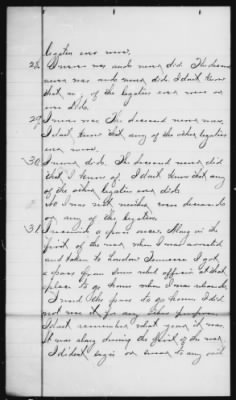 legatee ever were.
28 I never was and never did. The deceased
never was and never did. I don't know
that any of the legatees ever were or
ever did.
29 I never was. The deceased never was.
I don't know that any of the other legatees
ever were.
30 I never did. The deceased never did
that I know of. I don't know that any
of the other legatees ever did.
I was not neither was deceased
or any of the legatees.
31 I received a pass once. Along in the
first of the war when I was arrested
and taken to Loudon Tennessee I got
a pass from some rebel officer at that
place to go home when I was released.
I used the pass to go home, I did
not use it for any other purpose.
I don't remember what year it was.
It was along during the first of the war.
I did not swear to any oath